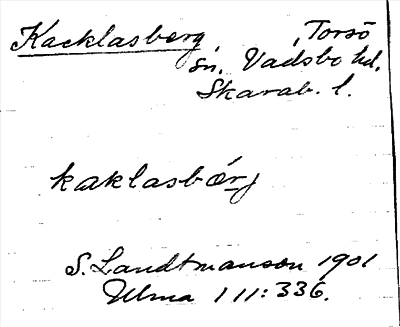 Kacklasberg, Torsö
sn. Vadsbo hd.
Skarab. l.
kaklasbærj
S. Landtmanson 1901
Ulma 111:336.